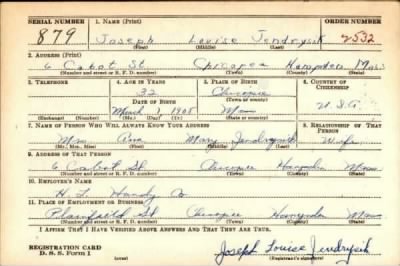 SERIAL NUMBER 1. NAME (Print) ORDER NUMBER
879 Joseph Louise Jendrysik 2532
(First) (Middle) (Last)
2. ADDRESS (Print)
6 Cabot St. Chicopee Hampden Mass
(Number and street or R. F. D. number) (Town) (County) (State)
3. TELEPHONE 4. AGE IN YEARS 5. PLACE OF BIRTH 6. COUNTRY OF CITIZENSHIP
32 Chicopee
DATE OF BIRTH (Town or county)
March 1908 Mass U.S.A.
(Exchange) (Number) (Mo.) (Day) (Yr.) (State or country)
7. NAME OF PERSON WHO WILL ALWAYS KNOW YOUR ADDRESS 8. RELATIONSHIP OF THAT PERSON
Mrs Mary Jendrysik Wife
(Mr., Mrs., Miss) (First) (Middle) (Last)
9. ADDRESS OF THAT PERSON
6 Cabot St Chicopee Hampden Mass
(Number and street or R. F. D. number) (Town) (County) (State)
10. EMPLOYER'S NAME
H. L. Handy Co
11. PLACE OF EMPLOYMENT OR BUSINESS
Plainfield St Chicopee Hampden Mass
(Number and street or R. F. D. number) (Town) (County) (State)
I AFFIRM THAT I HAVE VERIFIED ABOVE ANSWERS AND THAT THEY ARE TRUE.
REGISTRATION CARD
D. S. S. Form 1 Joseph Louise Jendrysik
(over) (Registrant's signature)